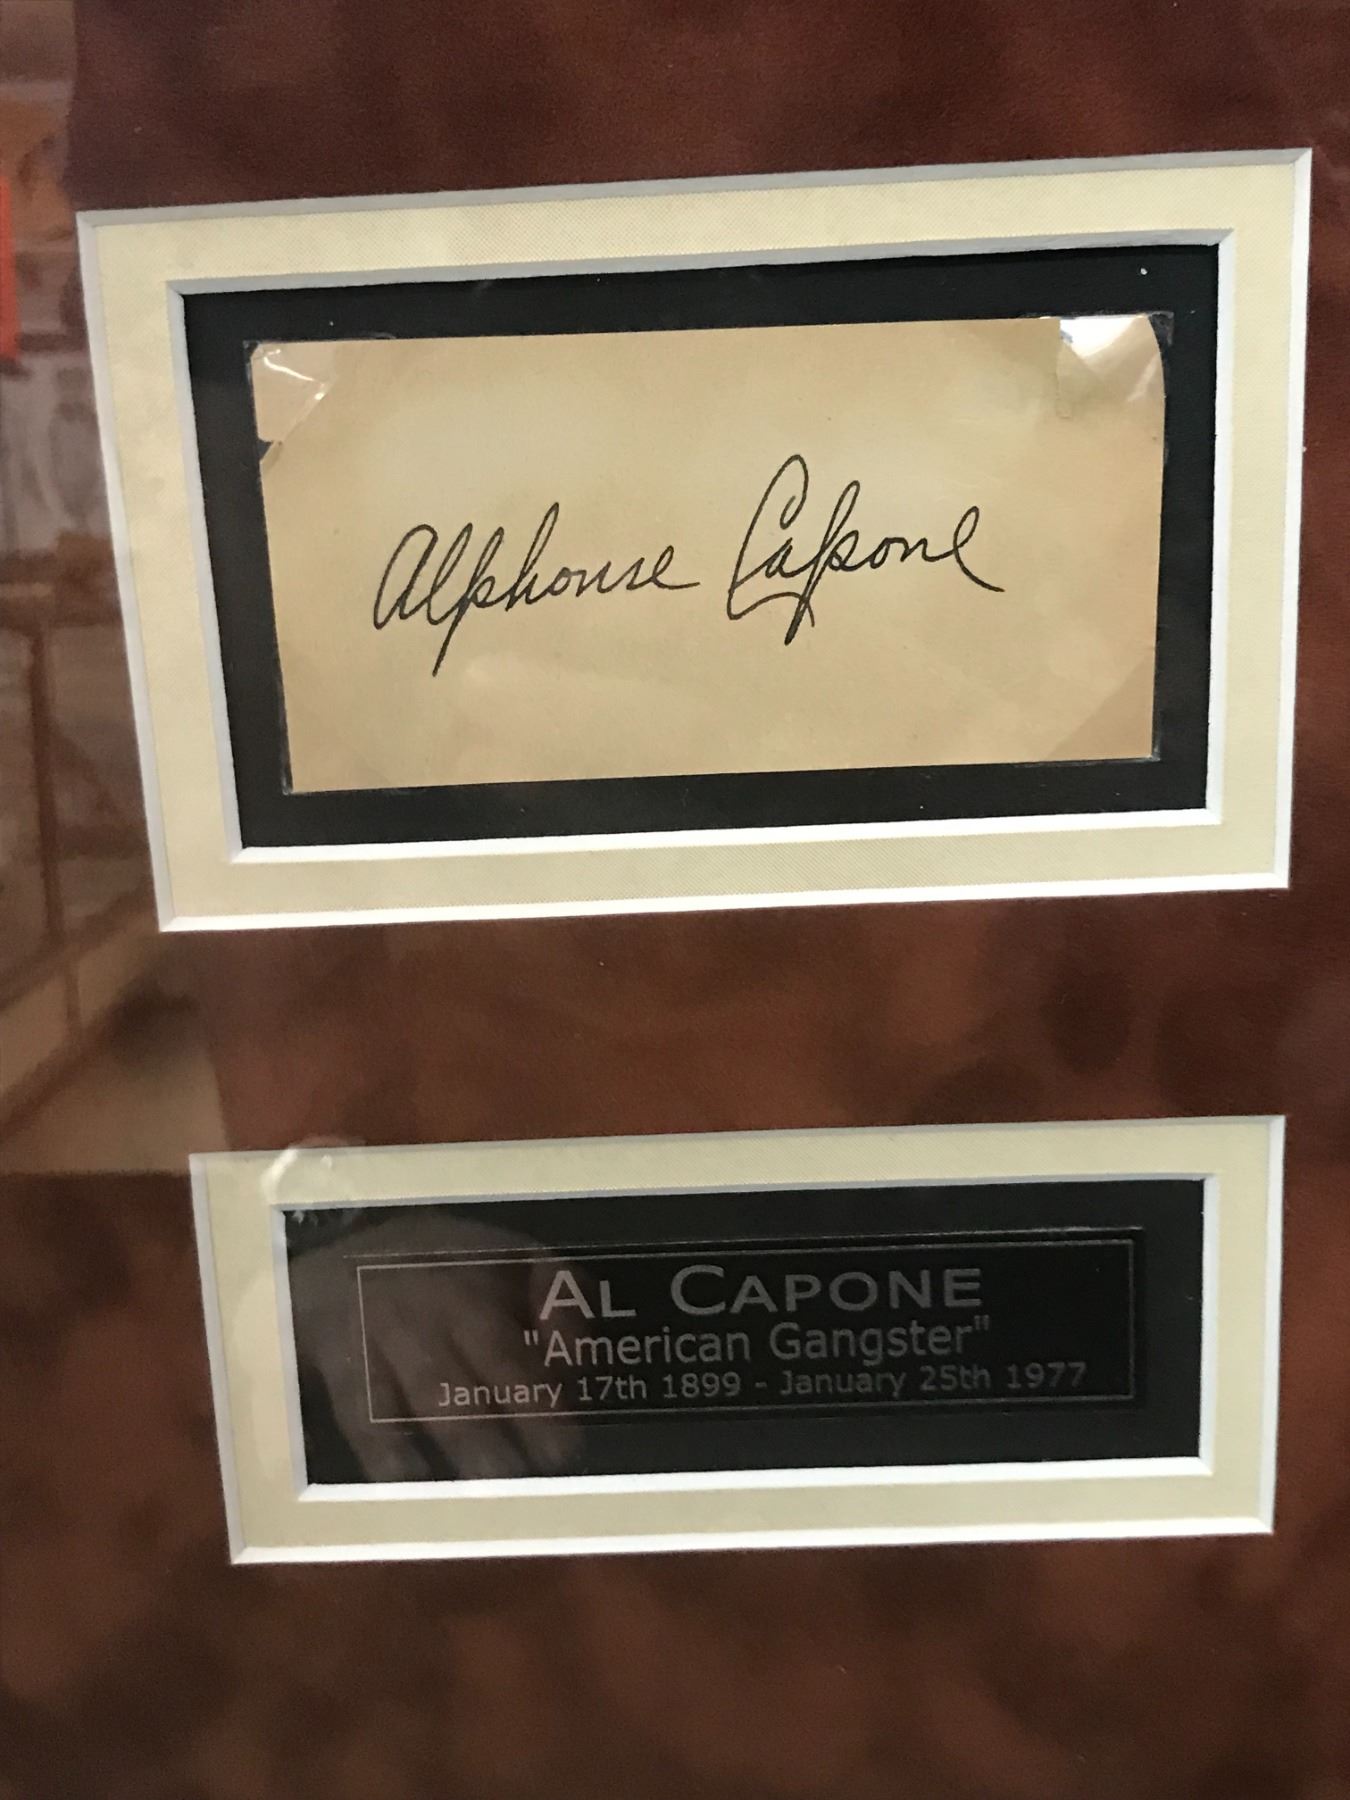 Alphonse Capone
AL CAPONE
"American Gangster"
January 17th 1899 - January 25th 1977